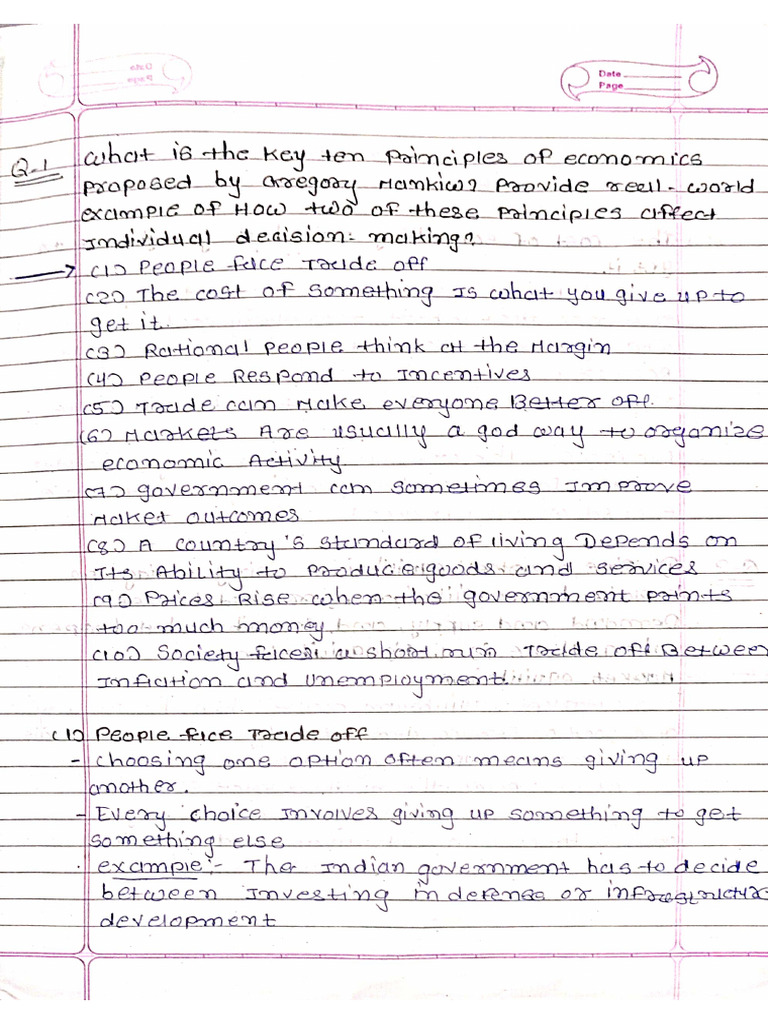 Date
Page
Q-1 What is the key ten principles of economics
proposed by Gregory Mankiw? Provide reall-world
example of How two of these principles affect
Individual decision-making?
→ (1) People face Trade off
(2) The cost of something Is what you give up to
get it.
(3) Rational people think at the Margin
(4) People Respond to Incentives
(5) Trade can Make everyone Better off.
(6) Markets Are usually a god way to organize
economic Activity
(7) government can sometimes Improve
Market outcomes
(8) A country's standard of living Depends on
Its Ability to produce goods and services
(9) Prices Rise when the government prints
too much money
(10) Society faces a short run Trade off Between
Inflation and Unemployment.
(1) People face Trade off
- choosing one option often means giving up
another.
- Every choice Involves giving up something to get
something else
example :- The Indian government has to decide
between Investing in defense or infrastructure
development